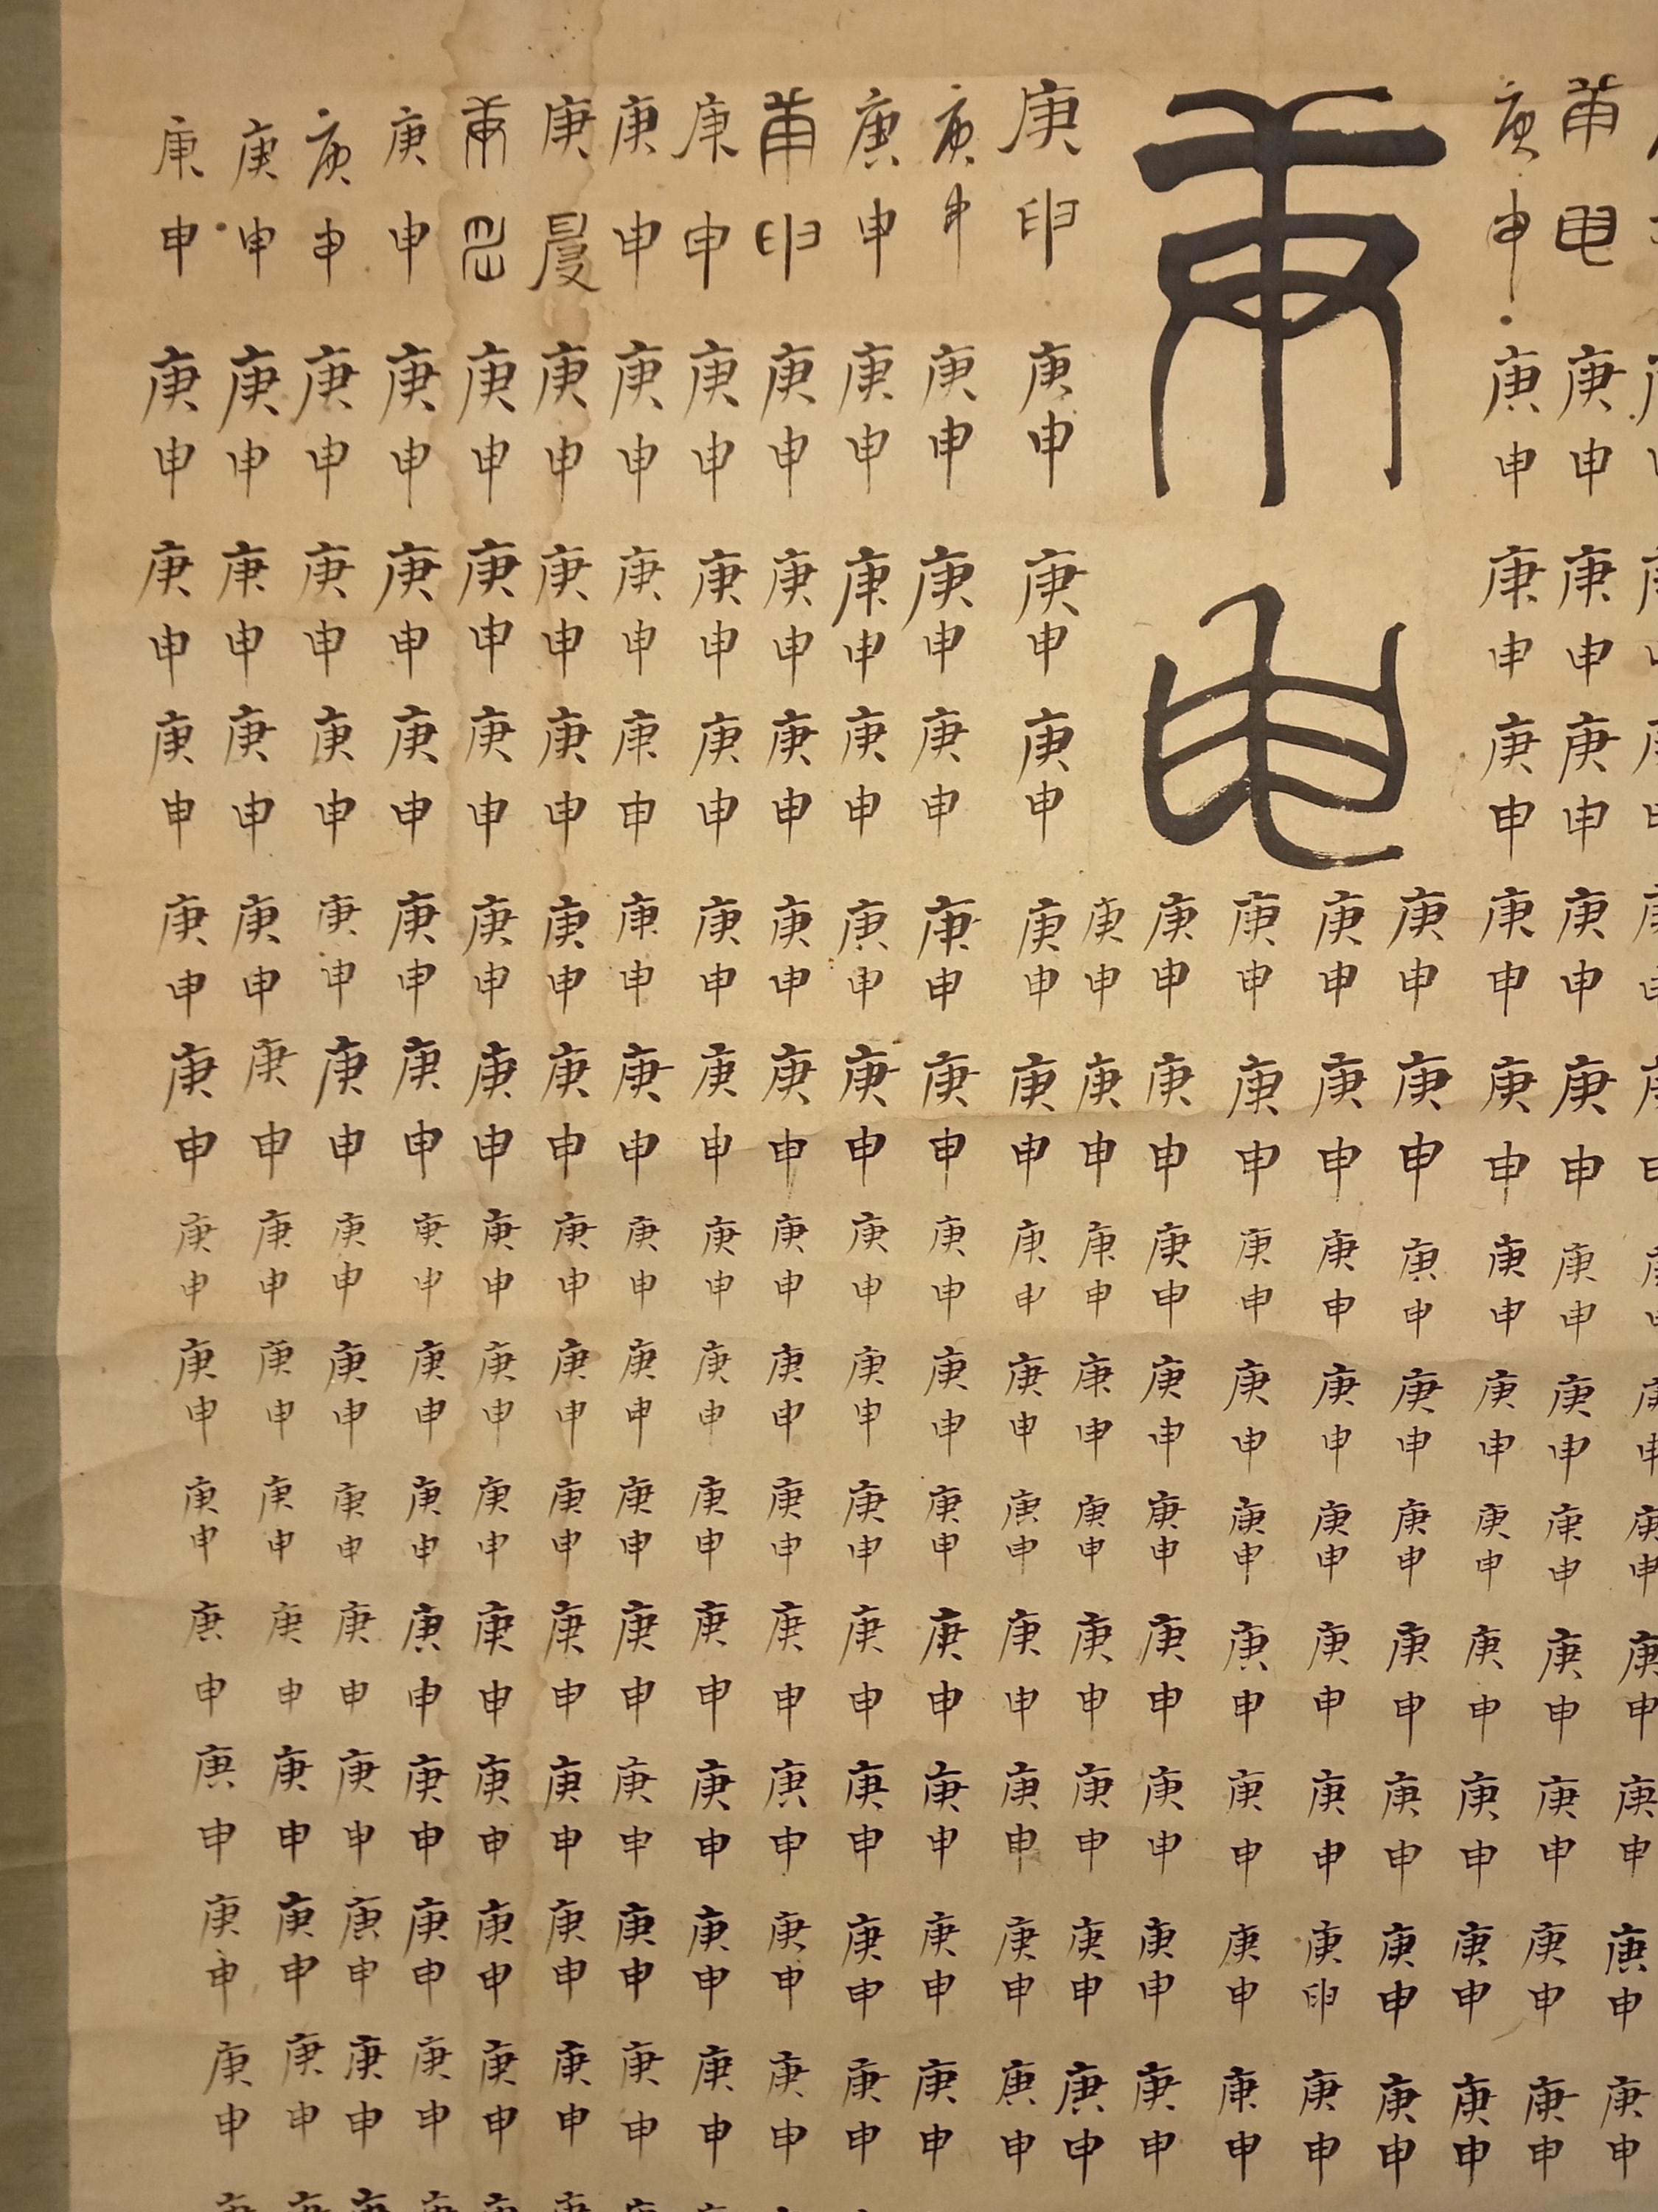 庚申庚申庚申庚申庚申
庚申庚申庚申庚申庚申庚申庚申庚申庚申庚申庚申庚申庚申
庚申庚申庚申庚申庚申庚申庚申庚申庚申庚申庚申庚申庚申
庚申
庚申庚申庚申庚申庚申庚申庚申庚申庚申
庚申庚申庚申庚申庚申庚申庚申庚申庚申
庚申庚申庚申庚申庚申庚申庚申庚申庚申
庚申庚申庚申庚申庚申庚申庚申庚申庚申
庚申庚申庚申庚申庚申庚申庚申庚申庚申
庚申庚申庚申庚申庚申庚申庚申庚申庚申庚申庚申庚申庚申
庚申庚申庚申庚申庚申庚申庚申庚申庚申庚申庚申庚申庚申
庚申庚申庚申庚申庚申庚申庚申庚申庚申庚申庚申庚申庚申
庚申庚申庚申庚申庚申庚申庚申庚申庚申庚申庚申庚申庚申
庚申庚申庚申庚申庚申庚申庚申庚申庚申庚申庚申庚申庚申
庚申庚申庚申庚申庚申庚申庚申庚申庚申庚申庚申庚申庚申
庚庚申庚申庚申庚申庚申庚申庚申庚申庚申庚申庚申庚申
庚申庚申庚申庚申庚申庚申庚申庚申庚申庚申庚申庚申庚申
庚申庚申庚申庚申庚申庚申庚申庚申庚申庚申庚申庚申庚申
庚申庚申庚申庚申庚申庚申庚申庚申庚申庚申庚申庚申庚申
庚申庚申庚申庚申庚申庚申庚申庚申庚申庚申庚申庚申庚申
庚申庚申庚申庚申庚申庚申庚申庚申庚申庚申庚申庚申庚申